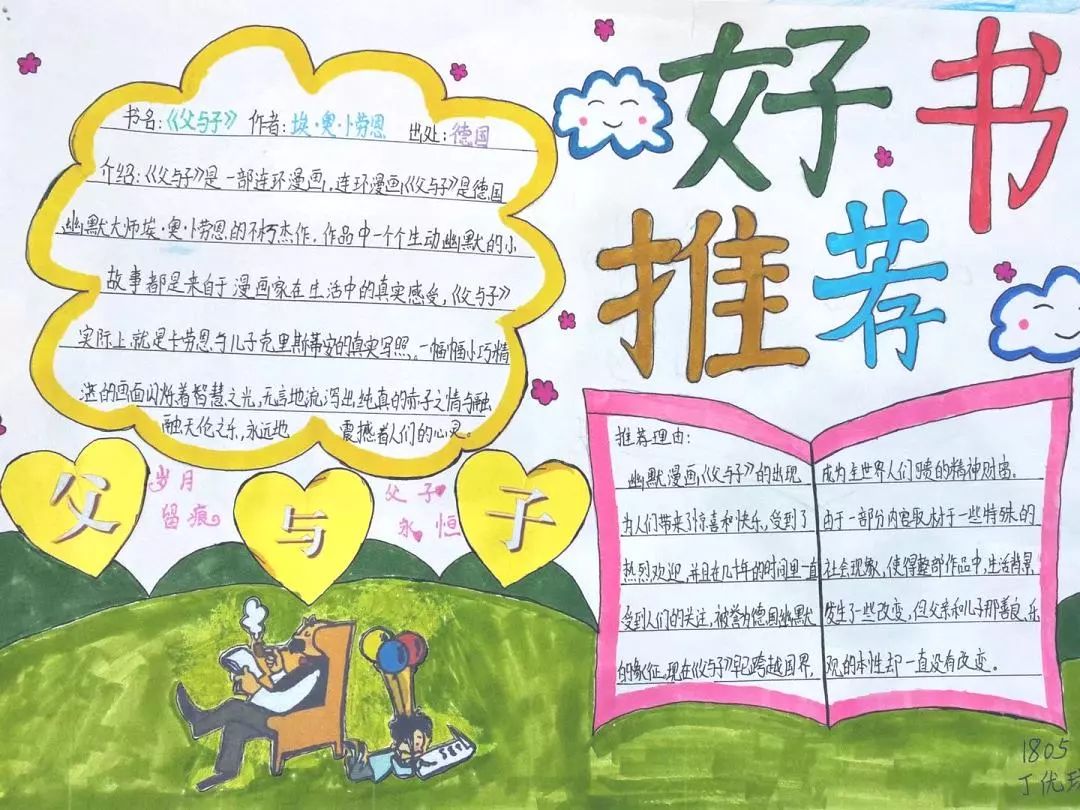 好书
推荐
书名:《父与子》 作者:埃·奥·卜劳恩 出处:德国
介绍:《父与子》是一部连环漫画,连环漫画《父与子》是德国
幽默大师埃·奥·卜劳恩的不朽杰作,作品中一个个生动幽默的小
故事都是来自于漫画家在生活中的真实感受,《父与子》
实际上就是卡劳恩与儿子克里斯蒂安的真实写照。一幅幅小巧精
湛的画面闪烁着智慧之光,无言地流泻出纯真的赤子之情与融
融天伦之乐,永远地 震撼着人们的心灵。
父与子
岁月
留痕
父子
永恒
推荐理由:
幽默漫画《父与子》的出现
为人们带来了惊喜和快乐,受到了
热烈欢迎,并且在几十年的时间里一直
受到人们的关注,被誉为德国幽默
的象征,现在《父与子》早已跨越国界,
成为全世界人们的精神财富。
由于一部分内容取材于一些特殊的
社会现象,使得整部作品中,生活背景
发生了一些改变,但父亲和儿子那善良、乐
观的本性却一直没有改变。
1805
丁优